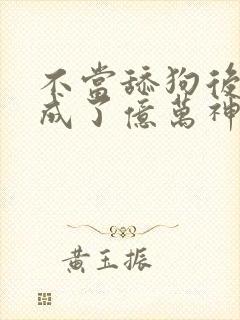 不當舔狗後
成了億萬神
黃玉振